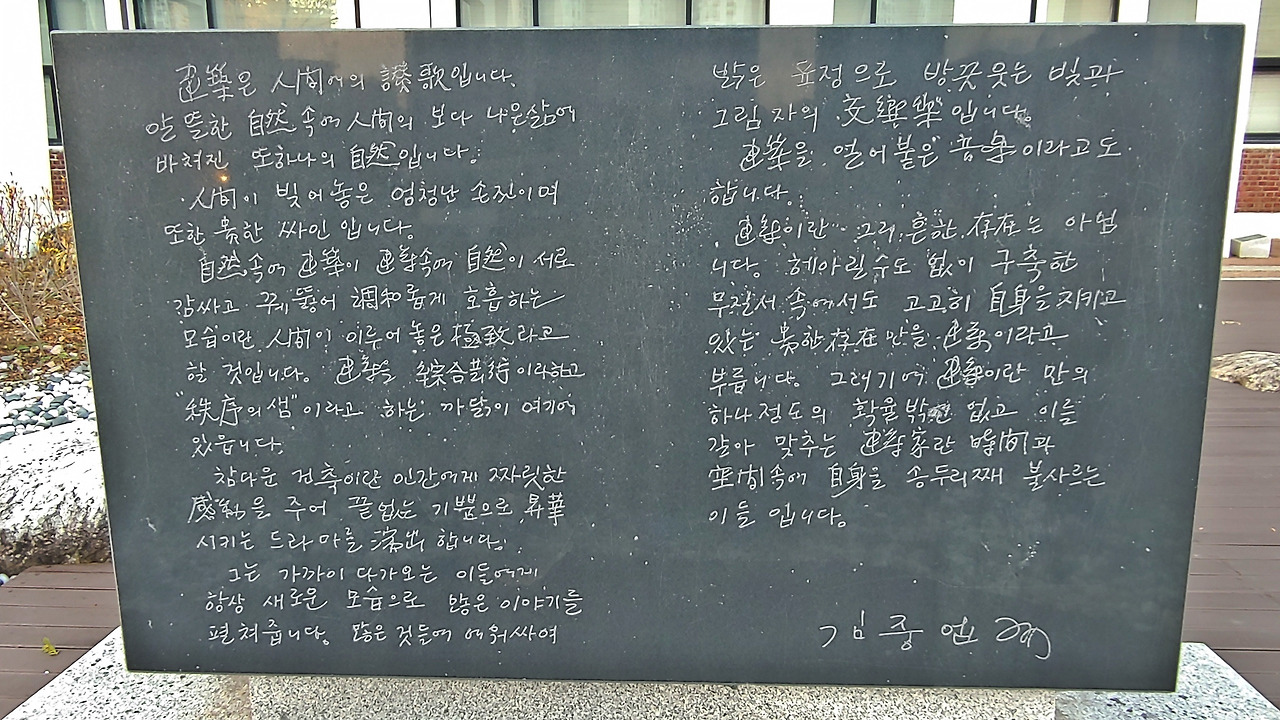 建築은 人間에의 讚歌입니다.
알뜰한 自然속에 人間의 보다 나은삶에
바쳐진 또하나의 自然입니다.
人間이 빚어놓은 엄청난 손짓이며
또한 貴한 싸인 입니다.
自然속에 建築이 建築속에 自然이 서로
감싸고 꿰뚫어 調和롭게 호흡하는
모습이란, 人間이 이루어 놓은 極致라고
할 것입니다. 建築을 綜合芸術이라하고
"秩序의 샘"이라고 하는 까닭이 여기에
있읍니다.
참다운 건축이란 인간에게 짜릿한
感動을 주어 끝없는 기쁨으로 昇華
시키는 드라마를 演出 합니다.
그는 가까이 다가오는 이들에게
항상 새로운 모습으로 많은 이야기를
펼쳐줍니다. 많은것들에 에워싸여
밝은 표정으로 방끗웃는 빛과
그림자의 交響樂입니다.
建築을 얼어붙은 音樂이라고도
합니다.
建築이란 그리 흔한 存在는 아닙
니다. 헤아릴수도 없이 구축한
무질서 속에서도 고고히 自身을 지키고
있는 貴한存在 만을 建築이라고
부릅니다. 그러기에 建築이란 만의
하나정도의 확율밖에 없고 이를
갈아 맞추는 建築家란 時間과
空間속에 自身을 송두리째 불사르는
이들 입니다.
김중업